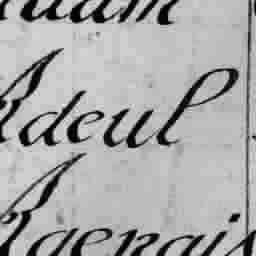 Adam
Adeul
Agenais